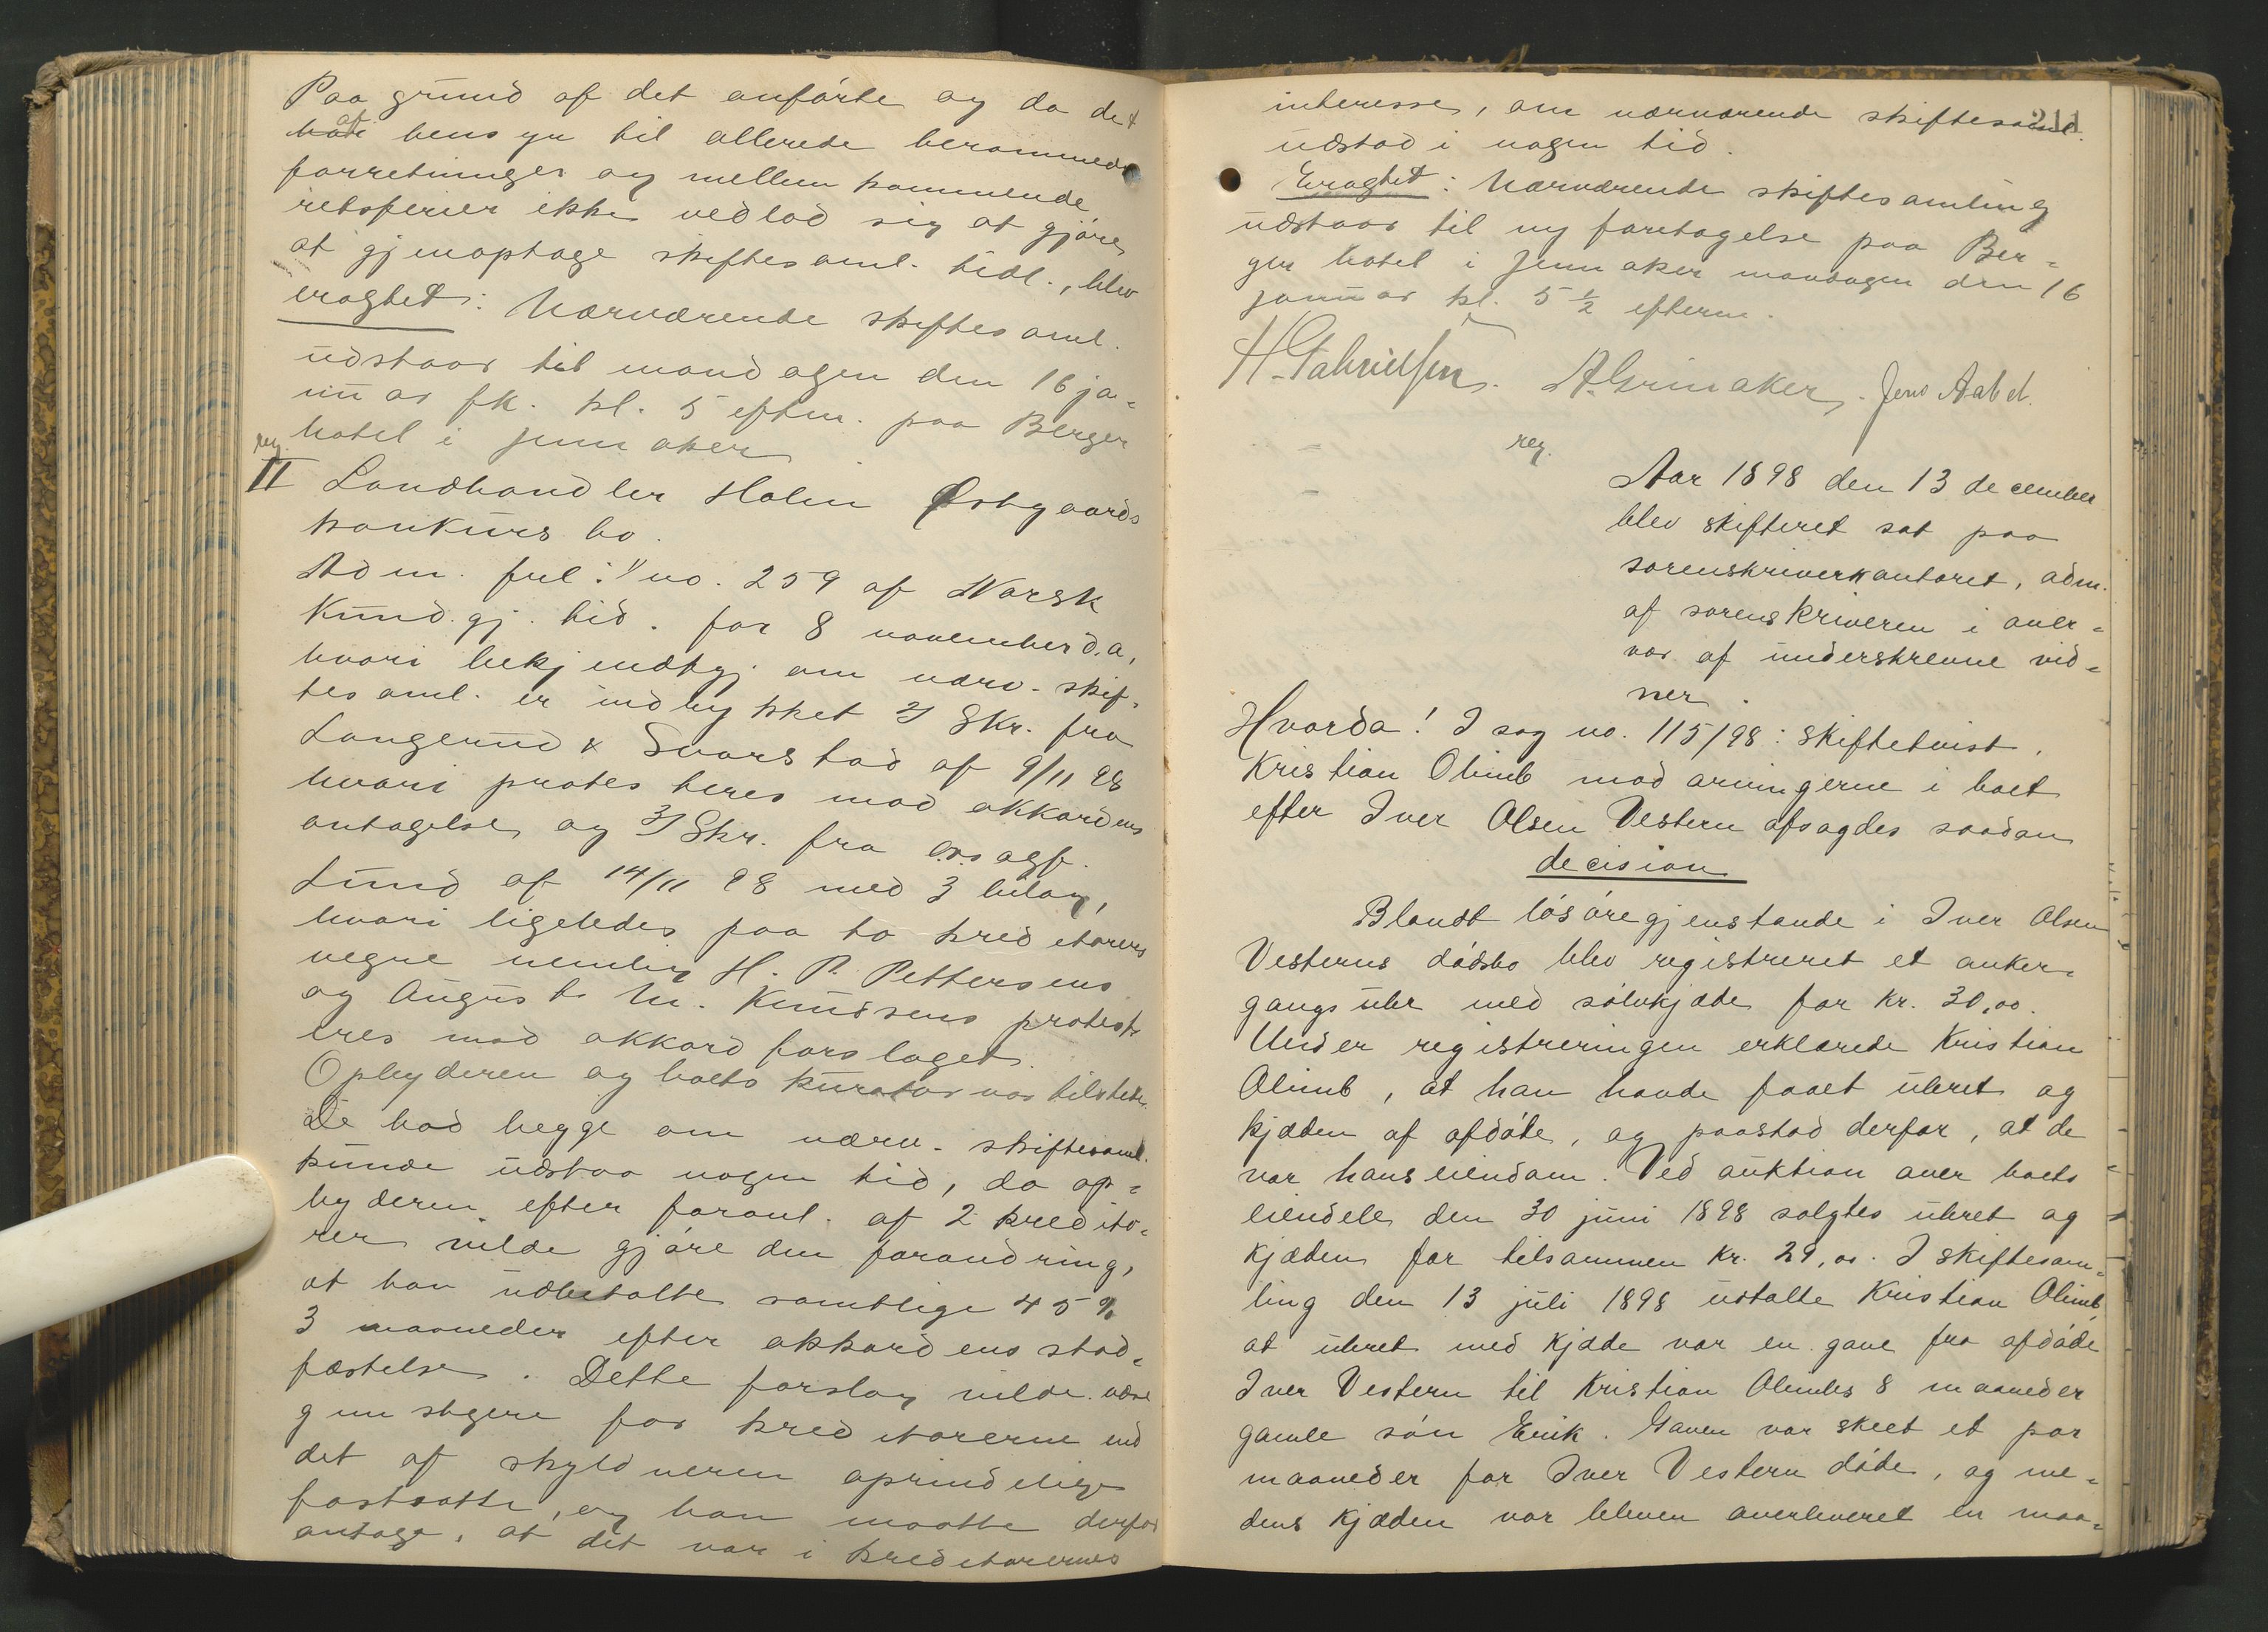 Paa grund af det anførte og da det
af hensyn til allerede berammede
forretninger og mellem kommende
retsferier ikke vedlod sig at gjøre
at gjenoptage skiftesaml. tidl., blev
eragtet: Nærværende skiftesaml.
udstaar til mandagen den 16 ja-
nuar fk. kl. 5 efterm. paa Berger
hotel i Jevnaker
reg.
II Landhandler Halvor Østgaards
konkurs bo.
Adm. frel: 1/ no. 259 af Norsk
Kund.gj. tid. for 8 november d.a,
hvori bekjendtgj. om nærv. skif-
tesaml. er indrykket 2/ Skr. fra
Langerud & Svarstad af 9/11 98
hvori protesteres mod akkordens
antagelse og 3/ Skr. fra o.r.sagf.
Lund af 14/11 98 med 3 bilag,
hvori ligeledes paa to kreditorers
vegne nemlig H. P. Pettersens
og August M. Knudsens protest-
eres mod akkord forslaget.
Opbyderen og boets kurator var tilstede.
De bad begge om nærv. skiftesaml.
kunde udstaa nogen tid, da op-
byderen efter foranl. af 2 kredito-
rer vilde gjøre den forandring,
at han udbetalte samtlige 45 %
3 maaneder efter akkordens stad-
fæstelse. Dette forslag vilde være
gunstigere for kreditorerne end
det af skyldneren oprindelige
fastsatte, og han maatte derfor
antage, at det var i kreditorernes
211
interesse, om nærværende skiftesaml.
udstod i nogen tid.
Eragtet: Nærværende skiftesamling
udstaar til ny foretagelse paa Ber-
ger hotel i Jevnaker mandagen den 16
januar kl. 5 1/2 efterm.
H. Gabrielsen. A. Grinaker. Jens Aabel.
reg.
Aar 1898 den 13 december
blev skifteret sat paa
sorenskriverkantoret, adm.
af sorenskriveren i over-
vær af underskrevne vid-
ner.
Hvorda! I sag no. 115/98: skiftetvist,
Kristian Olimb mod arvingerne i boet
efter Iver Olsen Vestern afsagdes saadan
decision
Blandt løsøregjenstande i Iver Olsen
Vesterns dødsbo blev registreret et anker-
gangs uhr med sølvkjæde for kr. 30,00.
Under registreringen erklærede Kristian
Olimb, at han havde faaet uhret og
kjæden af afdøde, og paastod derfor, at de
var hans eiendom. Ved auktion over boets
eiendele den 30 juni 1898 solgtes uhret og
kjæden for tilsammen kr. 29,00. I skiftesam-
ling den 13 juli 1898 udtalte Kristian Olimb,
at uhret med kjæde var en gave fra afdøde
Iver Vestern til Kristian Olimbs 8 maaneder
gamle søn Erik. Gaven var skeet et par
maaneder før Iver Vestern døde, og me-
dens kjæden var bleven overleveret en maa-